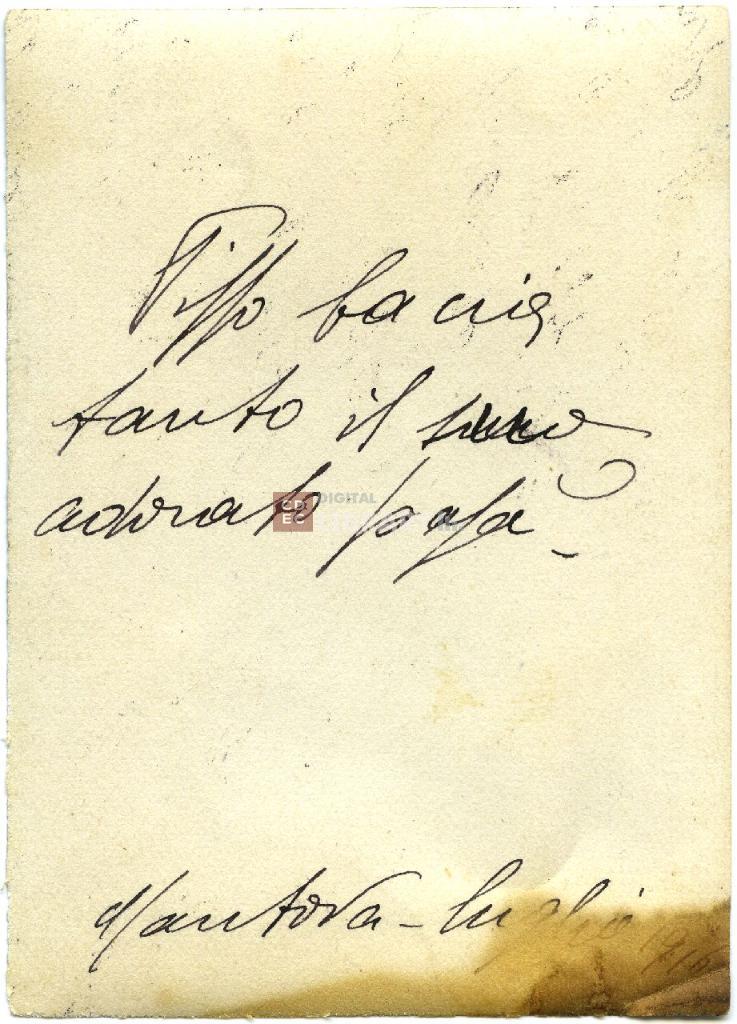 Piffo bacia
tanto il suo
adorato papà
CD
EC
DIGITAL
Mantova - luglio